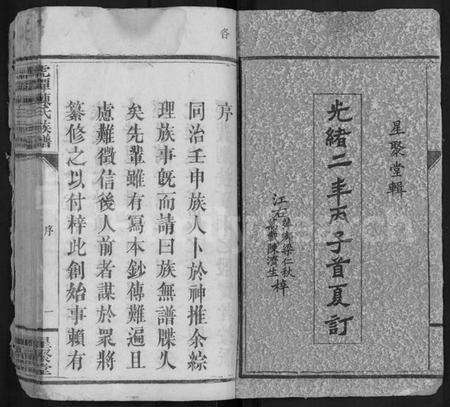 星聚堂輯
光緒二年丙子首夏訂
梁仁秋
陳濟生
江右
梓
各
序
同治壬申族人卜於神推余綜
理族事既而請曰族無譜牒久
矣先輩雖有寫本鈔傳難遍且
慮難徵信後人前者謀於眾將
纂修之以付梓此創始事賴有
氏族譜
序
一
星聚堂